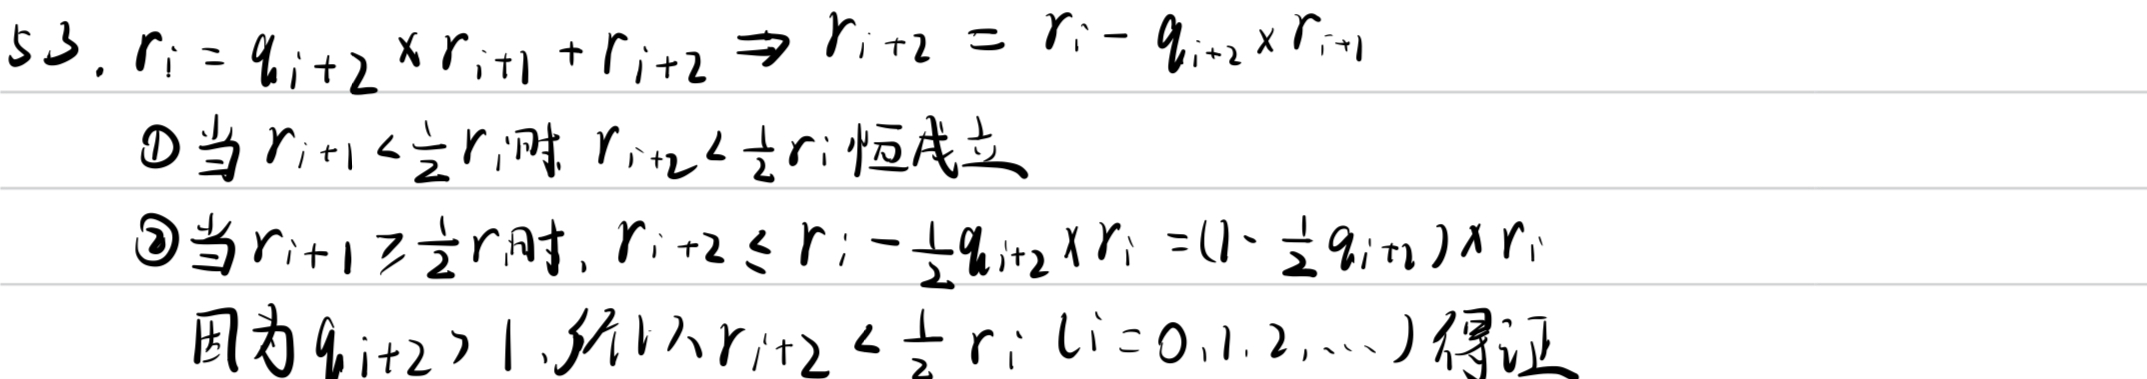 53. r_{i} = q_{i+2} × r_{i+1} + r_{i+2} ⇒ r_{i+2} = r_{i} - q_{i+2} × r_{i+1}
①当 r_{i+1} < \frac{1}{2} r_{i}时 r_{i+2} < \frac{1}{2} r_{i} 恒成立
②当 r_{i+1} ≥ \frac{1}{2} r_{i}时, r_{i+2} ≤ r_{i} - \frac{1}{2} q_{i+2} × r_{i} = (1 - \frac{1}{2} q_{i+2}) × r_{i}
因为 q_{i+2} > 1, 所以 r_{i+2} < \frac{1}{2} r_{i} (i = 0, 1, 2, ...) 得证